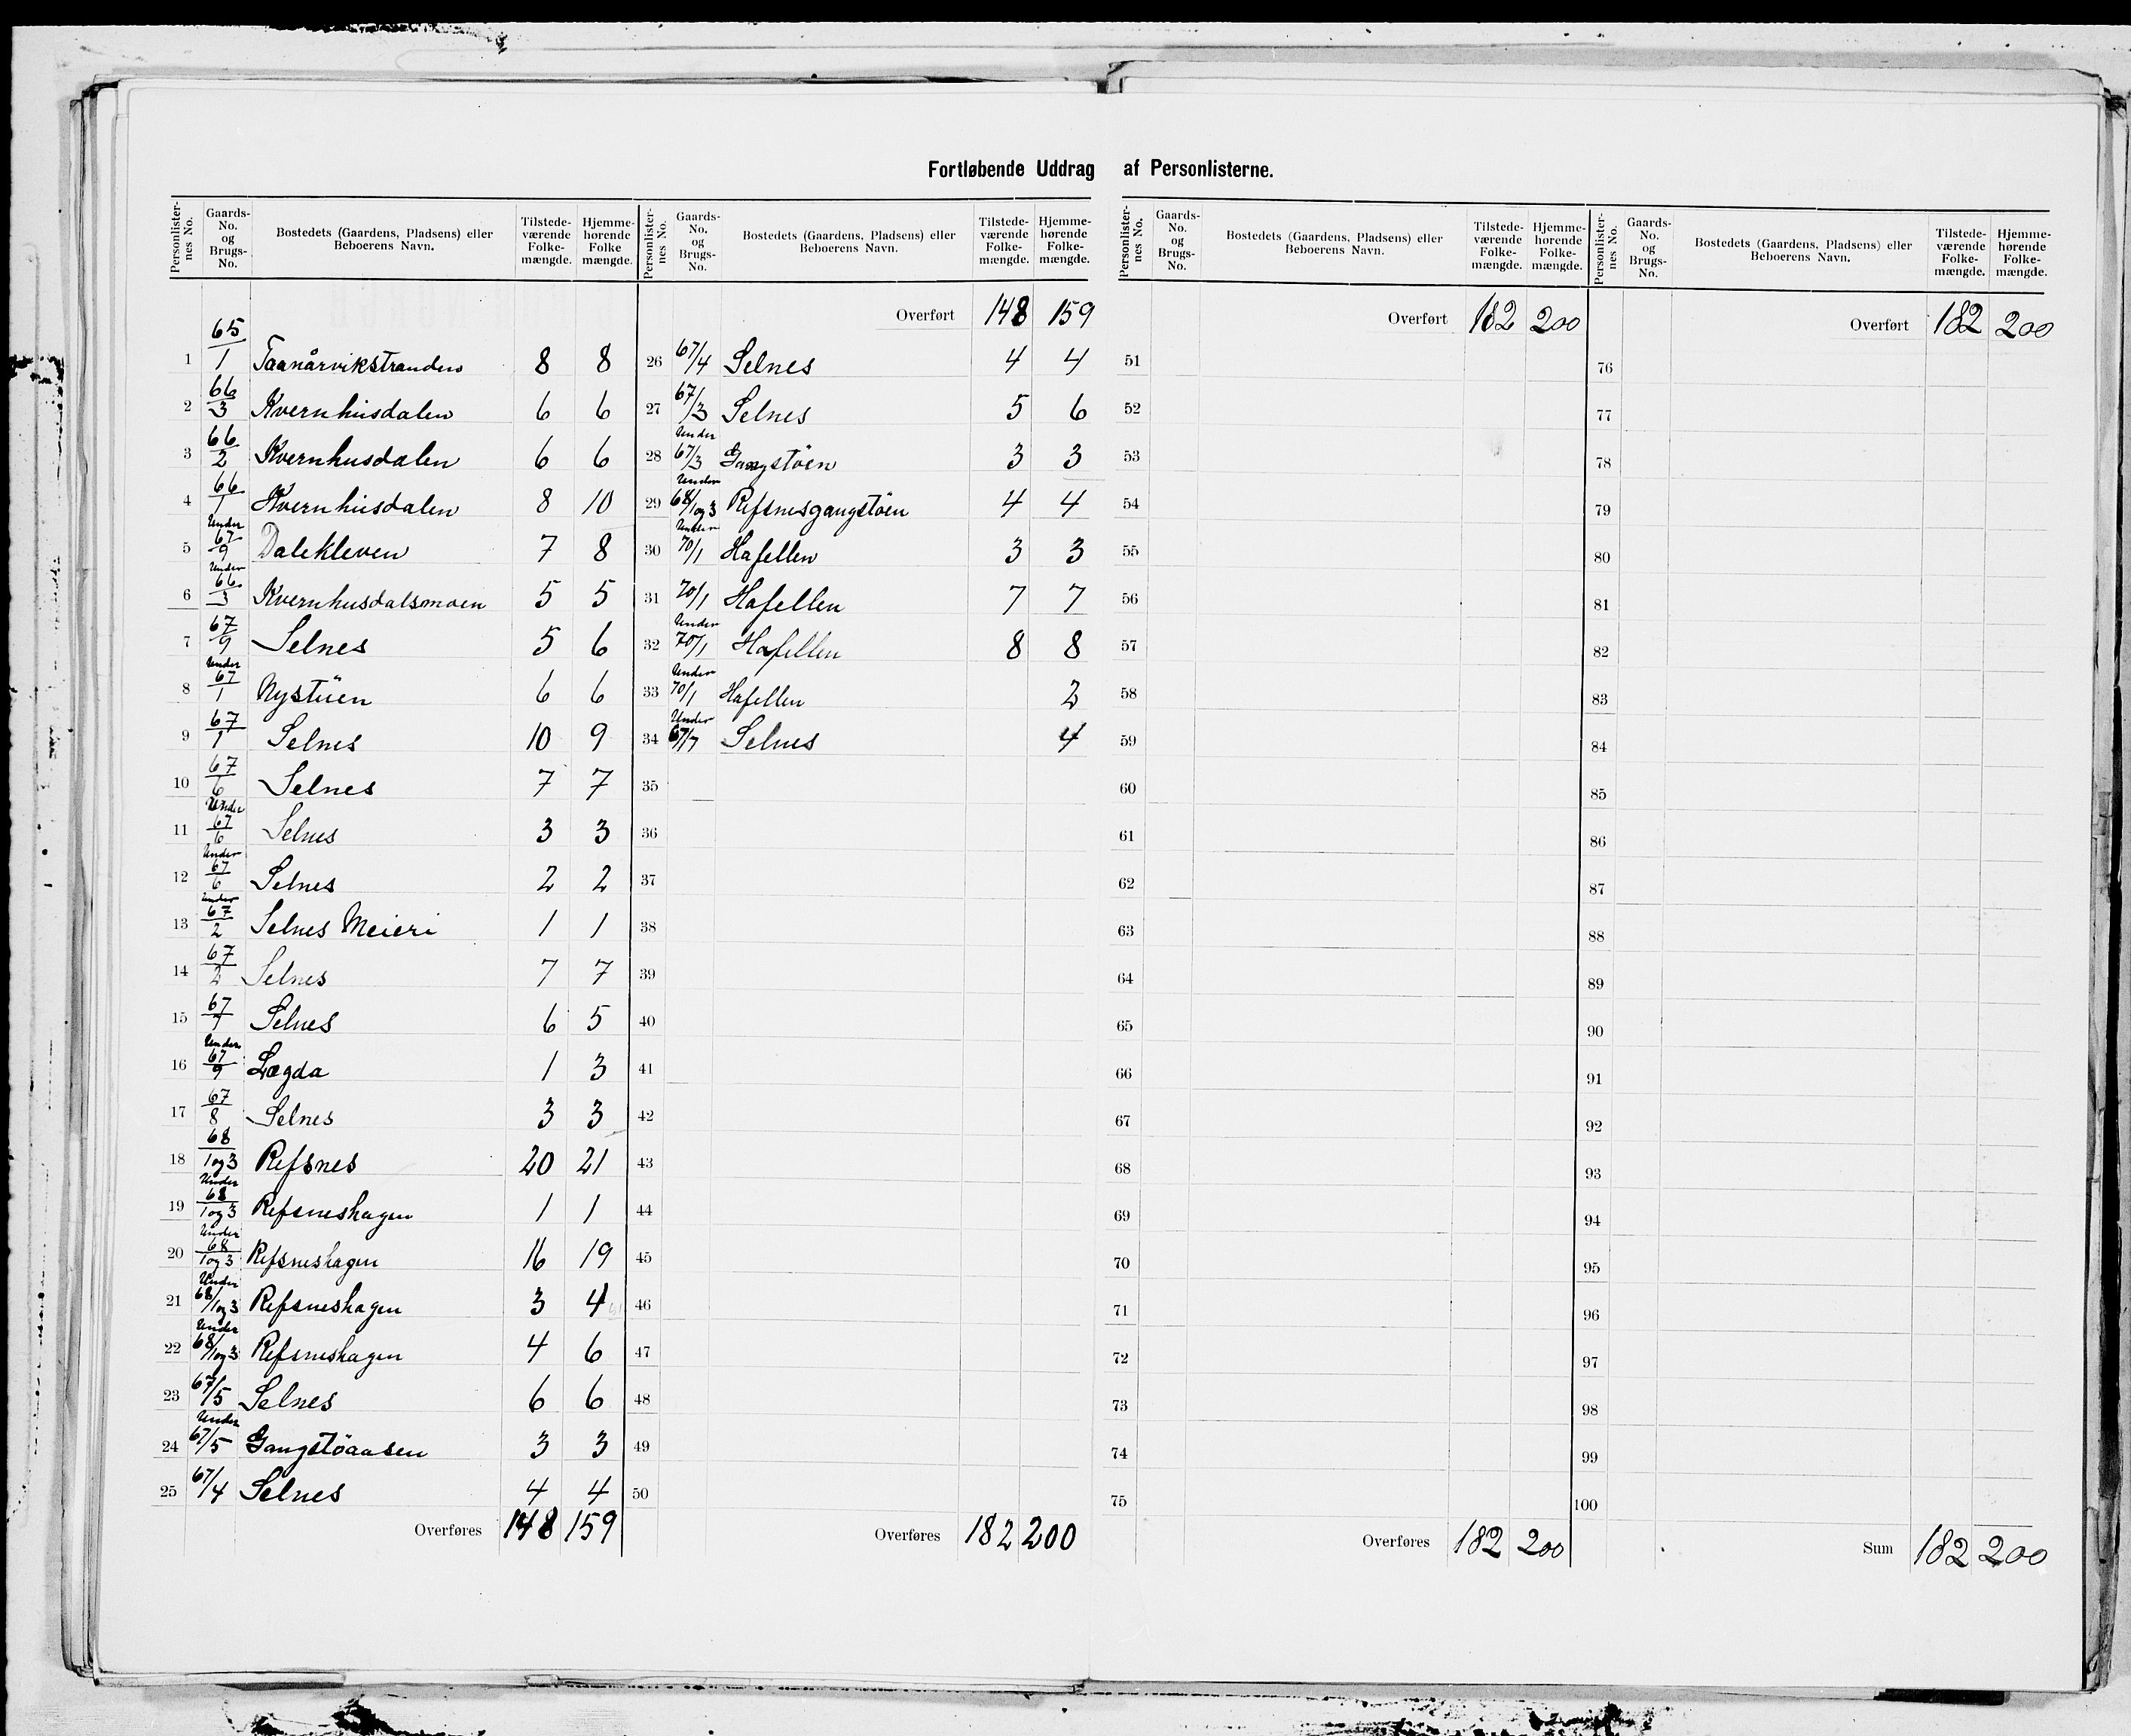 Fortløbende Uddrag af Personlisterne.
Personlister-nes No. Gaards-No. og Brugs-No. Bostedets (Gaardens, Pladsens) eller Beboerens Navn. Tilstede-værende Folke-mængde. Hjemme-hørende Folke mængde.
1 65/1 Taanårvikstranden 8 8
2 66/3 Kvernhusdalen 6 6
3 66/2 Kvernhusdalen 6 6
4 66/1 Kvernhusdalen 8 10
5 Under 67/9 Dalekleven 7 8
6 Under 66/3 Kvernhusdalsmoen 5 5
7 67/9 Selnes 5 6
8 Under 67/1 Nystuen 6 6
9 67/1 Selnes 10 9
10 67/6 Selnes 7 7
11 Under 67/6 Selnes 3 3
12 Under 67/6 Selnes 2 2
13 Under 67/2 Selnes Meieri 1 1
14 67/2 Selnes 7 7
15 67/7 Selnes 6 5
16 Under 67/9 Lægda 1 3
17 67/8 Selnes 3 3
18 68/1 og 3 Refsnes 20 21
19 Under 68/1 og 3 Refsneshagen 1 1
20 Under 68/1 og 3 Refsneshagen 16 19
21 Under 68/1 og 3 Refsneshagen 3 4
22 Under 68/1 og 3 Refsneshagen 4 6
23 67/5 Selnes 6 6
24 Under 67/5 Gangstöaasen 3 3
25 67/4 Selnes 4 4
Overføres 148 159
Personlister-nes No. Gaards-No. og Brugs-No. Bostedets (Gaardens, Pladsens) eller Beboerens Navn. Tilstede-værende Folke-mængde. Hjemme-hørende Folke-mængde.
Overført 148 159
26 67/4 Selnes 4 4
27 67/3 Selnes 5 6
28 Under 67/3 Gangstöen 3 3
29 Under 68/1 og 3 Refsnesgangstöen 4 4
30 Under 70/1 Hafellen 3 3
31 70/1 Hafellen 7 7
32 Under 70/1 Hafellen 8 8
33 Under 70/1 Hafellen 2
34 Under 67/7 Selnes 4
35
36
37
38
39
40
41
42
43
44
45
46
47
48
49
50
Overføres 182 200
Personlister-nes No. Gaards-No. og Brugs-No. Bostedets (Gaardens, Pladsens) eller Beboerens Navn. Tilstede-værende Folke-mængde. Hjemme-hørende Folke-mængde.
Overført 182 200
51
52
53
54
55
56
57
58
59
60
61
62
63
64
65
66
67
68
69
70
71
72
73
74
75
Overføres 182 200
Personlister-nes No. Gaards-No. og Brugs-No. Bostedets (Gaardens, Pladsens) eller Beboerens Navn. Tilstede-værende Folke-mængde. Hjemme-hørende Folke-mængde.
Overført 182 200
76
77
78
79
80
81
82
83
84
85
86
87
88
89
90
91
92
93
94
95
96
97
98
99
100
Sum 182 200